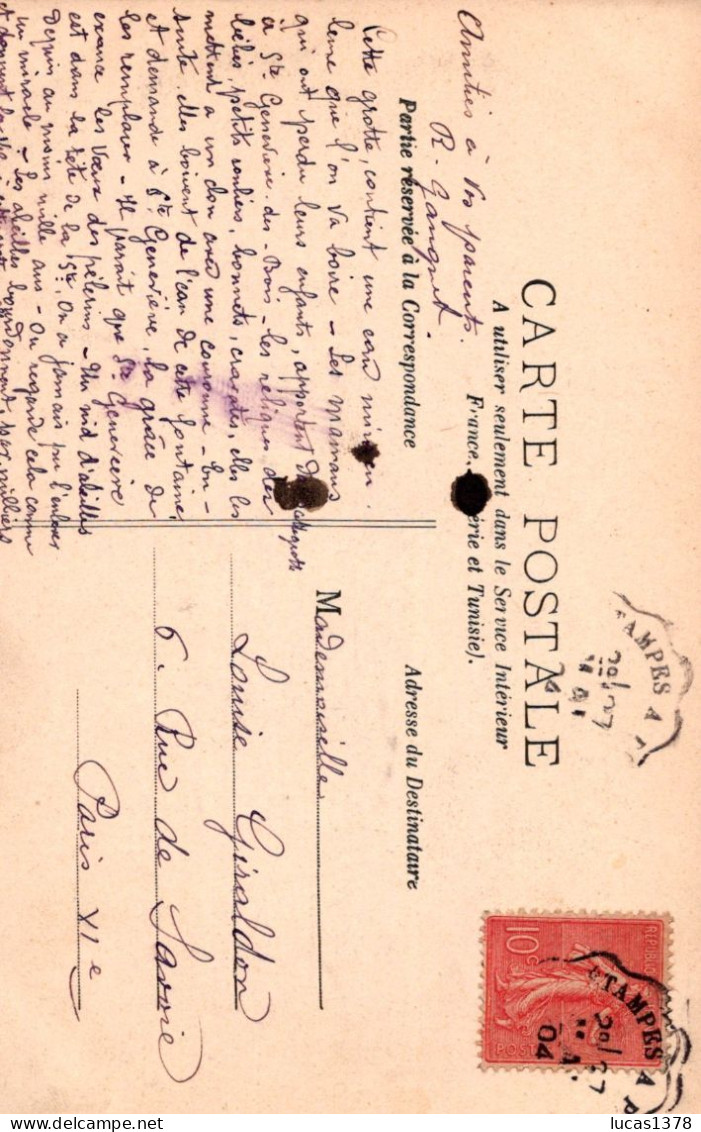 CARTE POSTALE
A utiliser seulement dans le Service Intérieur
France, érie et Tunisie).
Partie réservée à la Correspondance
Adresse du Destinataire
Amitiés à Vos parents.
R. Gangnet.
Cette grotte, contient une eau miracu
leuse que l'on va boire - Les mamans
qui ont perdu leurs enfants, apportent
à Ste Geneviève-des-Bois - les reliques des
bébés, petits souliers, bonnets, cravates, elles les
mettent à un clou avec une couronne - En-
suite, elles boivent de l'eau de cette fontaine,
et demande à Ste Geneviève, la grâce de
les remplacer - Il parait que Ste Geneviève
exauce les Vœux des pèlerins - Un nid d'abeilles
est dans la tête de la Ste. On a jamais pu l'enlever
Depuis au moins mille ans - On regarde cela comme
un miracle - les abeilles bourdonnent, par milliers
Mademoiselle
Louise Giraldon
6. Rue de Savoie
Paris VIe
10c
REPUBLIQUE
POSTES
TAMPES A P
04
TAMPES A
lucas1378